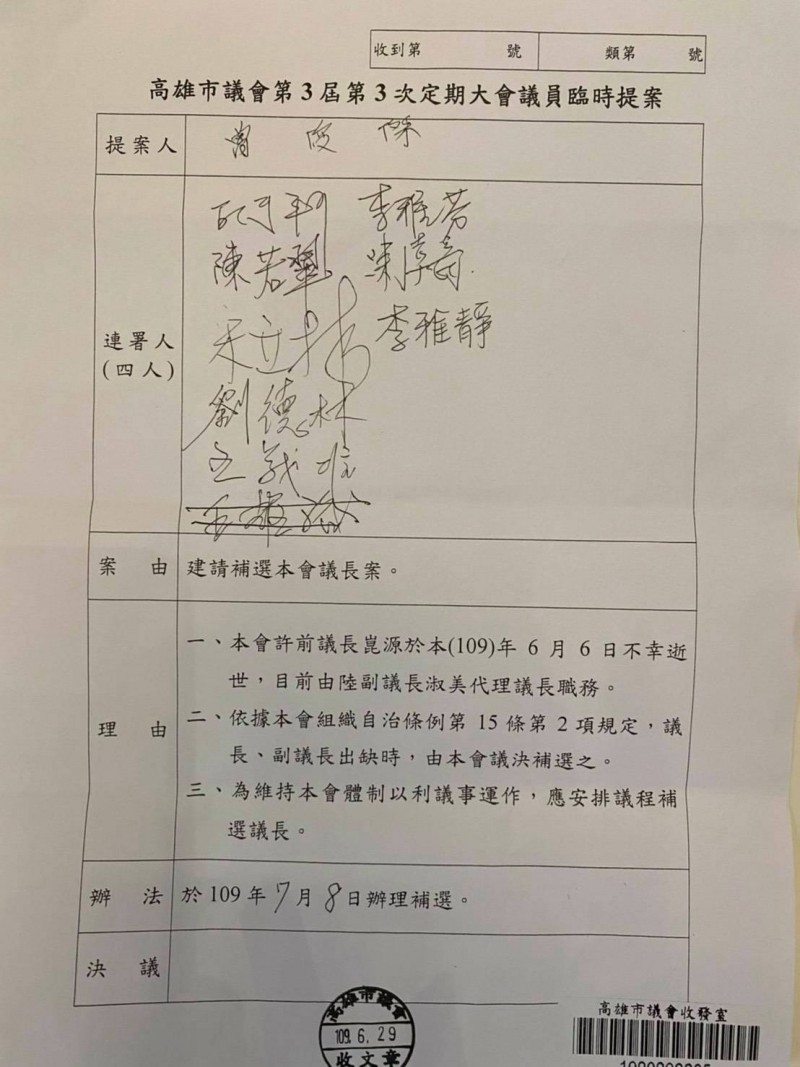 收到第 號 類第 號
高雄市議會第3屆第3次定期大會議員臨時提案
提案人
李雅芬
陳若翠
李雅靜
連署人
(四人)
劉德林
王義雄
案由 建請補選本會議長案。
一、本會許前議長崑源於本(109)年 6 月 6 日不幸逝
世，目前由陸副議長淑美代理議長職務。
理由 二、依據本會組織自治條例第 15 條第 2 項規定，議
長、副議長出缺時，由本會議決補選之。
三、為維持本會體制以利議事運作，應安排議程補
選議長。
辦法 於 109 年 7 月 8 日辦理補選。
決議
高雄市議會
109. 6. 29
收文章
高雄市議會收發室